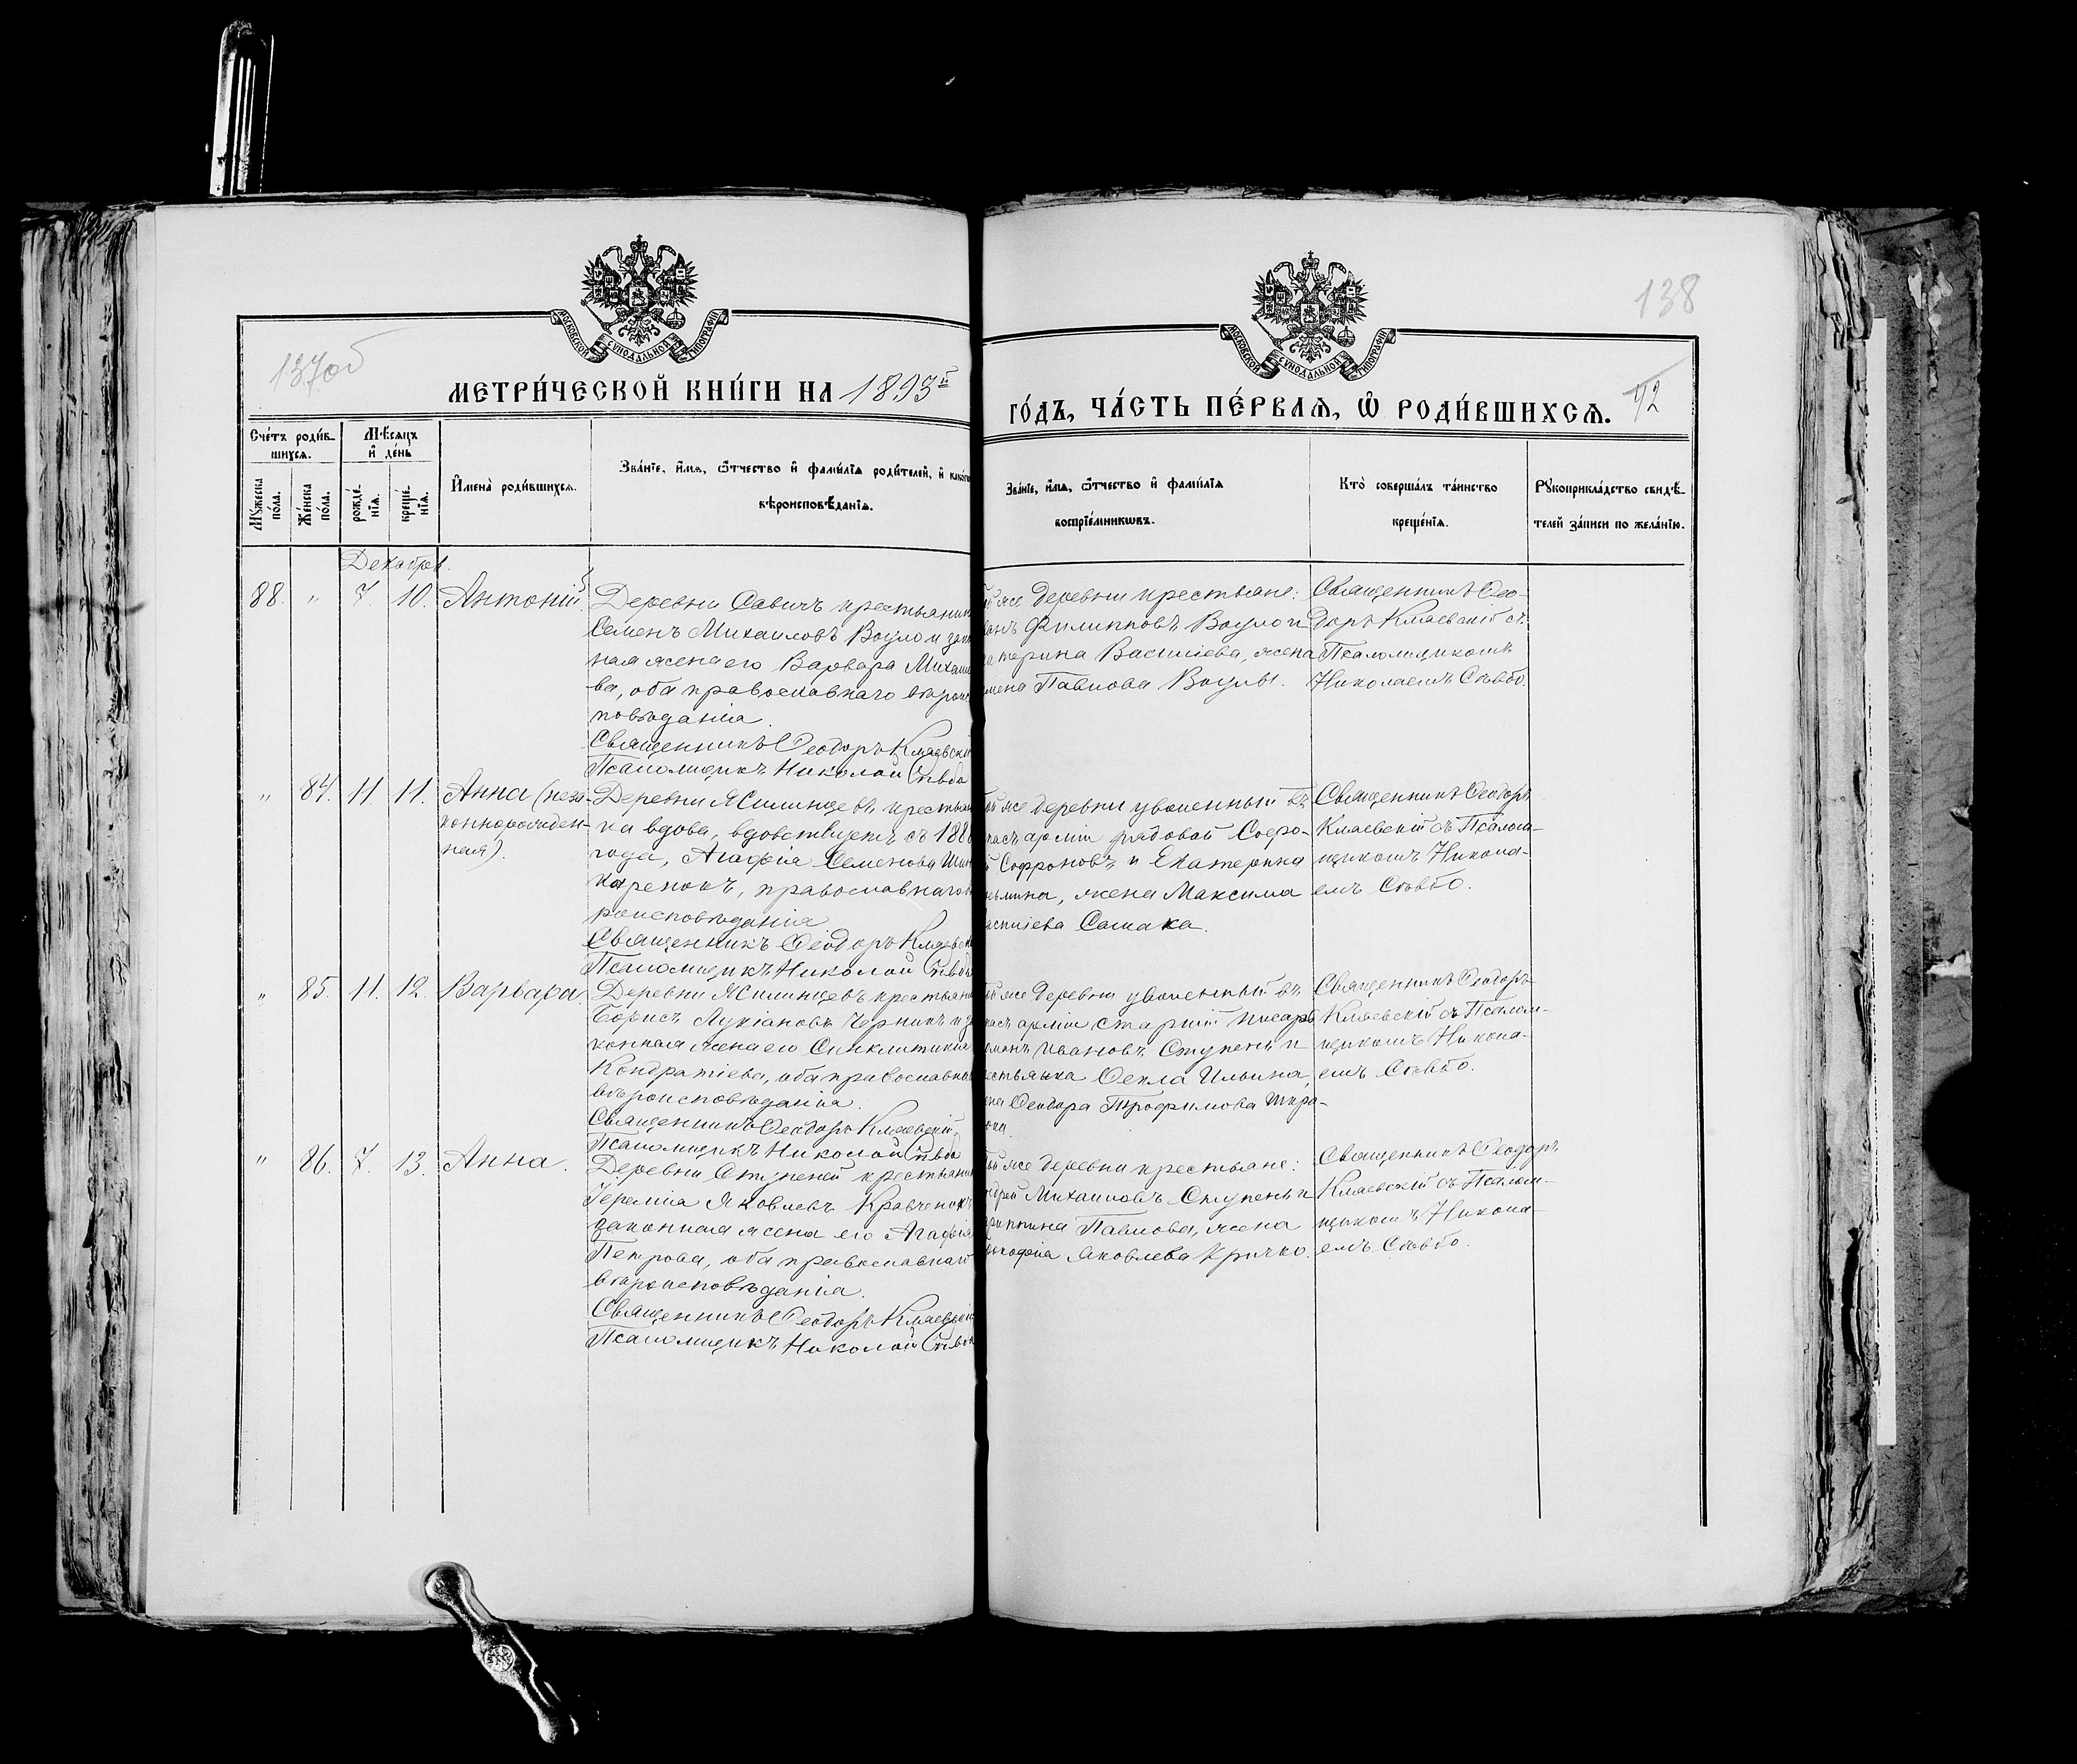 137об
138
МОСКОВСКОЙ СѴНОДАЛЬНОЙ ТИПОГРАФІИ
МЕТРИ́ЧЕСКОЙ КНИ́ГИ НА 1893й
МОСКОВСКОЙ СѴНОДАЛЬНОЙ ТИПОГРАФІИ
ГО́ДЪ, ЧА́СТЬ ПЕ́РВАѦ, Ѽ РОДИ́ВШИХСѦ.
Сче́тъ роди́в-
шихсѧ.
Мѣ́сѧцъ
и҆ де́нь
Мꙋ́жеска по́ла.
Же́нска по́ла.
рожде́-
нїѧ.
креще́-
нїѧ.
И҆мена̀ роди́вшихсѧ.
Зва́нїе, и҆́мѧ, ѻ҆́тчество и҆ фами́лїѧ роди́телей, и҆ како́гѡ
вѣроисповѣ́данїѧ.
Зва́нїе, и҆́мѧ, ѻ҆́тчество и҆ фами́лїѧ
воспрїе́мникѡвъ.
Кто̀ соверша́лъ та́инство
креще́нїѧ.
Рꙋкоприкла́дство свидѣ́-
телей за́писи по жела́нїю.
Декабрь.
88. " 7. 10. Антоній
Деревни Савичъ крестьянин
Семенъ Михаиловъ Воуло и зако
ная жена его Варвара Михаило
ва, оба православнаго вѣроис
повѣданія.
Священникъ Ѳеодоръ Кмяевскій
Псаломщикъ Николай
же деревни крестьяне:
Филипповъ Воуло и
атерина Василіева, жена
мена Павлова Воулы.
Священникъ Ѳео-
доръ Кмяевскій съ
Псаломщикомъ
Николаемъ
" 84. 11. 11. Анна (неза-
коннорожден-
ная).
Деревни крестьян
ка вдова, вдовствуетъ съ 188
года, Агафія Семенова
православнаго вѣ
роисповѣданія
Священникъ Ѳеодоръ Кмяевскій
Псаломщикъ Николай
же деревни уволенный въ
пасъ арміи рядовой Софро-
й Софроновъ и Екатерина
жена Максима
асиліева
Священникъ Ѳеодоръ
Кмяевскій съ Псалом-
щикомъ Никола-
емъ
" 85. 11. 12. Варвара
Деревни крестьяни
Борисъ Лукіановъ Черникъ и за
конная жена его Синклитикія
Кондратіева, оба православнаго
вѣроисповѣданія.
Священникъ Ѳеодоръ Кмяевскій
Псаломщикъ Николай
же деревни уволенный въ
пасъ арміи старшій писарь
Ивановъ Ступень и
естьянка Ѳекла Ильина,
на Ѳеодора Трофимова
Священникъ Ѳеодоръ
Кмяевскій съ Псалом-
щикомъ Никола-
емъ
" 86. 7. 13. Анна.
Деревни Ступеней крестьянин
Іеремія Яковлевъ Кравченокъ
законная жена его Агафія
Петрова, оба православнаго
вѣроисповѣданія.
Священникъ Ѳеодоръ Кмяевскій
Псаломщикъ Николай
же деревни крестьяне:
ндрей Михаиловъ Ступень и
гриппина Павлова, жена
Яковлева Кричко.
Священникъ Ѳеодоръ
Кмяевскій съ Псалом-
щикомъ Никола-
емъ